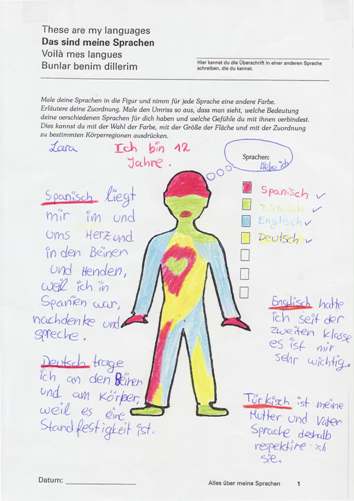 These are my languages
Das sind meine Sprachen
Voilà mes langues
Bunlar benim dillerim
Hier kannst du die Überschrift in einer anderen Sprache
schreiben, die du kennst.
Male deine Sprachen in die Figur und nimm für jede Sprache eine andere Farbe.
Erläutere deine Zuordnung. Male den Umriss so aus, dass man sieht, welche Bedeutung
deine verschiedenen Sprachen für dich haben und welche Gefühle du mit ihnen verbindest.
Dies kannst du mit der Wahl der Farbe, mit der Größe der Fläche und mit der Zuordnung
zu bestimmten Körperregionen ausdrücken.
Lara
Ich bin 12
Jahre.
Sprachen:
Spanisch
Englisch
Deutsch
Spanisch liegt
mir im und
ums Herz und
in den Beinen
und Henden,
weil ich in
Spanien war,
nachdenke und
spreche.
Deutsch trage
ich an den Beinen
und am Körper,
weil es eine
Standfestigkeit ist.
Englisch hatte
ich seit der
zweiten klasse
es ist mir
sehr wichtig.
Türkisch ist meine
Mutter und Vater
Sprache deshalb
respektire ich
sie.
Datum:
Alles über meine Sprachen 1